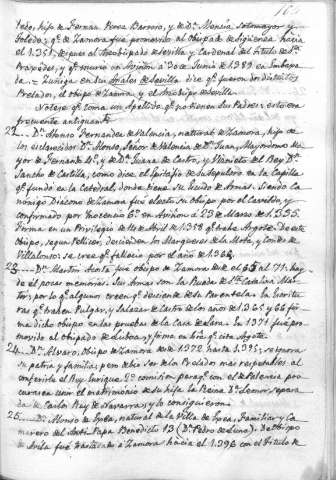 ledo, hijo de Fernan Perez Barroso, y de Dª Mencia Sotomayor y
Toledo, qe. de Zamora fue promovido al obispado de Sigüenza hacia
el 1351. despues al Arzobispado de Sevilla y Cardenal del titulo de Sta.
Praxedes, y qe. murio en Aviñon à 30 de Junio de 1374 en Embaxa
da. = Zuñiga en sus Anales de Sevilla dice qe. fueron distintos
Prelados, el obispo de Zamora, y el Arzobispo de Sevilla.
Notese qe. toma un Apellido qe. no tienen sus Padres: esto era
frecuente antiguamte.
22.... Dn. Alonso Fernandez de Valencia, natural de Zamora, hijo de
los esclarecidos Dn. Alonso, Señor de Valencia de Dn. Juan, Mayordomo Ma
yor de Fernando 4º, y de Dª Juana de Castro, y Nieto del Rey Dn.
Sancho de Castilla, como dice el Epitafio de su Sepulcro en la Capilla
qe. fundó en la Catedral, donde tiene su Escudo de Armas. Siendo Ca
nonigo Diacono de Zamora fue electo su Obispo por el Cavildo, y
confirmado por Inocencio 6º en Aviñon à 23 de Marzo de 1355.
Firma en un Privilegio de 14 de Abril de 1359 qe. trahe Argote. De este
obispo, segun Pellicer, descienden los Marqueses de la Mota, y Condes de
Villalonso: se cree qe. fallecio por el año de 1365.
23.... Dn. Martin Acosta fue obispo de Zamora desde el 65 al 71: hay
de él pocas memorias. Sus Armas son la Rueda de Sta. Catalina Mar
tir; por lo qe. algunos creen qe. desciende de la Parentela. En Escritu
ras qe. trahen Pulgar, y Salazar de Castro de los años de 1365 y 66 fir
ma dicho obispo en las pruebas de la Casa de Lara. En 1371 fue pro
movido al obispado de Lisboa, y firma en qe. cita Argote.
24.... Dn. Alvaro, obispo de Zamora desde 1372 hasta 1395: se ignora
su patria y familia; pero debio ser de los Prelados mas respetados al
conferirle el Rey Enrique 2º comision para qe. con el de Palencia pro
curasen con el matrimonio de su hija la Reina Dª Leonor, separa
da de Carlos Rey de Navarra; y lo consiguieron.
25.... Dn. Alonso de Exea, natural de la Villa de Exea, Familiar y Ca
marero del Anti-Papa Benedicto 13 (Dn. Pedro de Luna). De Obispo
de Avila fue trasladado à Zamora hacia el 1396 con el titulo de